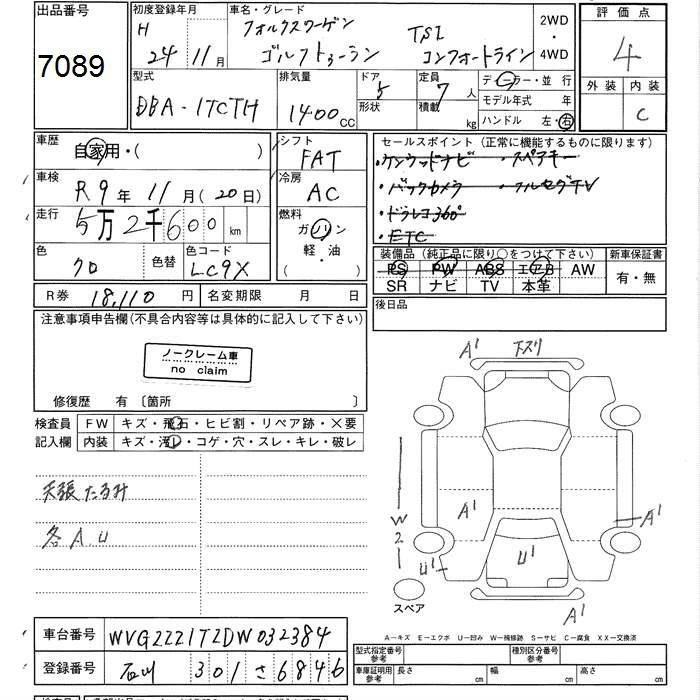 出品番号 初度登録年月 車名・グレード 2WD・4WD 評価点
7089 H 24 11月 フォルクスワーゲン ゴルフトゥーラン TSI コンフォートライン 4
型式 排気量 ドア 定員 ディーラー・並行 外装 内装
DBA-1TCTH 1400CC 5 7人 モデル年式 年 C
形状 積載 kg ハンドル 左・右
車歴 自家用・( ) シフト FAT セールスポイント(正常に機能するものに限ります)
車検 R9年 11月(20日) 冷房 AC ・ケンウッドナビ ・スペアキー
・バックカメラ ・フルセグTV
走行 5万2千600km 燃料 ガソリン・軽・油 ・ドラレコ360°
・ETC
色 クロ 色替 色コード LC9X
装備品(純正品に限り○をつけて下さい) 新車保証書
PS PW ABS エアB AW 有・無
SR ナビ TV 本革
R券 18,110円 名変期限 月 日 後日品
注意事項申告欄(不具合内容等は具体的に記入して下さい)
ノークレーム車
no claim
修復歴 有〔箇所 〕
検査員記入欄 FW キズ・飛石・ヒビ割・リペア跡・X要
内装 キズ・汚レ・コゲ・穴・スレ・キレ・破レ
天張たるみ
各A.U
A' 下スリ
W2
A'
A'
U'
U'
A'
スペア
A-キズ E-エクボ U-凹み W-補修跡 S-サビ C-腐食 XX-交換済
車台番号 WVGZZZ1TZDW032384
型式指定番号 参考 種別区分番号 参考
登録番号 石川 301 さ 6846
車庫証明用 参考 長さ cm 幅 cm 高さ cm